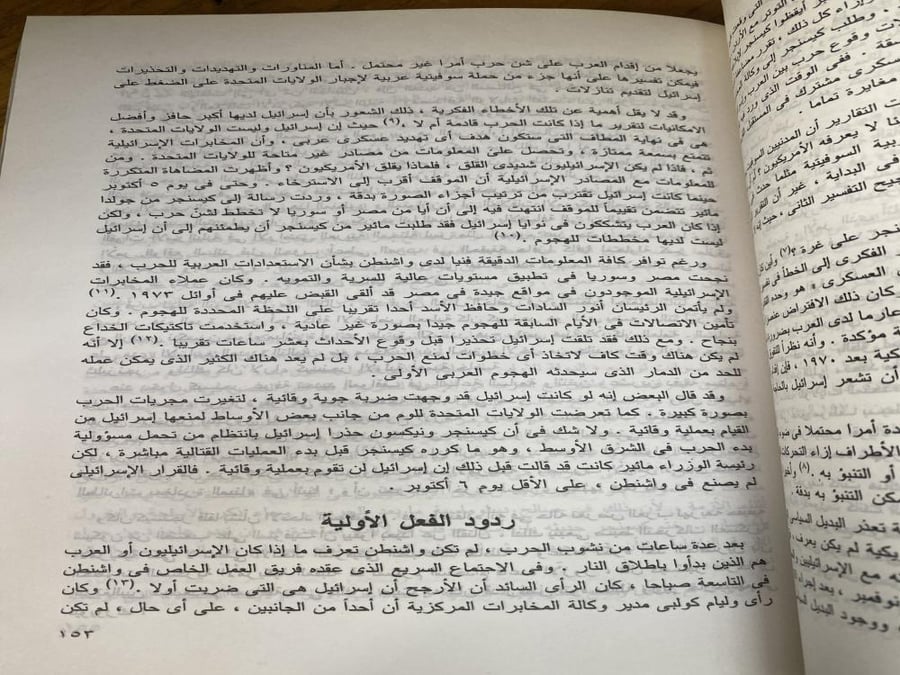 يجعلا من إقدام العرب على شن حرب أمرا غير محتمل . أما المناورات والتهديدات والتحذيرات
فيمكن تفسيرها على أنها جزء من حملة سوفيتية عربية لإجبار الولايات المتحدة على الضغط على
إسرائيل لتقديم تنازلات .
وقد لا يقل أهمية عن تلك الأخطاء الفكرية ، ذلك الشعور بأن إسرائيل لديها أكبر حافز وأفضل
الامكانيات لتقرير ما إذا كانت الحرب قادمة أم لا .(٩) حيث إن إسرائيل وليست الولايات المتحدة ،
هى فى نهاية المطاف التى ستكون هدف أى تهديد عسكرى عربى ، وأن المخابرات الإسرائيلية
تتمتع بسمعة ممتازة ، وتحصل على المعلومات من مصادر غير متاحة للولايات المتحدة . ومن
ثم ، فإذا لم يكن الإسرائيليون شديدى القلق ، فلماذا يقلق الأمريكيون ؟ وأظهرت المضاهاة المتكررة
للمعلومات مع المصادر الإسرائيلية أن الموقف أقرب إلى الاسترخاء . وحتى فى يوم ٥ أكتوبر
حينما كانت إسرائيل تقترب من ترتيب أجزاء الصورة بدقة ، وردت رسالة إلى كيسنجر من جولدا
مائير تتضمن تقييماً للموقف انتهت فيه إلى أن أيا من مصر أو سوريا لا تخطط لشن حرب ، ولكن
إذا كان العرب يتشككون فى نوايا إسرائيل فقد طلبت مائير من كيسنجر أن يطمئنهم إلى أن إسرائيل
ليست لديها مخططات للهجوم .(١٠)
ورغم توافر كافة المعلومات الدقيقة فنيا لدى واشنطن بشأن الاستعدادات العربية للحرب ، فقد
نجحت مصر وسوريا فى تطبيق مستويات عالية للسرية والتمويه . وكان عملاء المخابرات
الإسرائيلية الموجودون فى مواقع جيدة فى مصر قد ألقى القبض عليهم فى أوائل ١٩٧٣ .(١١)
ولم يأتمن الرئيسان أنور السادات وحافظ الأسد أحدا تقريبا على اللحظة المحددة للهجوم . وكان
تأمين الاتصالات فى الأيام السابقة للهجوم جيدا بصورة غير عادية ، واستخدمت تاكتيكات الخداع
بنجاح . ومع ذلك فقد تلقت إسرائيل تحذيرا قبل وقوع الأحداث بعشر ساعات تقريبا .(١٢) إلا أنه
لم يكن هناك وقت كاف لاتخاذ أى خطوات لمنع الحرب ، بل لم يعد هناك الكثير الذى يمكن عمله
للحد من الدمار الذى سيحدثه الهجوم العربى الأولى .
وقد قال البعض إنه لو كانت إسرائيل قد وجهت ضربة جوية وقائية ، لتغيرت مجريات الحرب
بصورة كبيرة . كما تعرضت الولايات المتحدة للوم من جانب بعض الأوساط لمنعها إسرائيل من
القيام بعملية وقائية . ولا شك فى أن كيسنجر ونيكسون حذرا إسرائيل بانتظام من تحمل مسؤولية
بدء الحرب فى الشرق الأوسط ، وهو ما كرره كيسنجر قبل بدء العمليات القتالية مباشرة ، لكن
رئيسة الوزراء مائير كانت قد قالت قبل ذلك إن إسرائيل لن تقوم بعملية وقائية . فالقرار الإسرائيلى
لم يصنع فى واشنطن ، على الأقل يوم ٦ أكتوبر .
ردود الفعل الأولية
بعد عدة ساعات من نشوب الحرب ، لم تكن واشنطن تعرف ما إذا كان الإسرائيليون أو العرب
هم الذين بدأوا باطلاق النار . وفى الاجتماع السريع الذى عقده فريق العمل الخاص فى واشنطن
فى التاسعة صباحا ، كان الرأى السائد أن الأرجح أن إسرائيل هى التى ضربت أولا .(١٣) وكان
رأى وليام كولبى مدير وكالة المخابرات المركزية أن أحداً من الجانبين ، على أى حال ، لم تكن
١٥٣